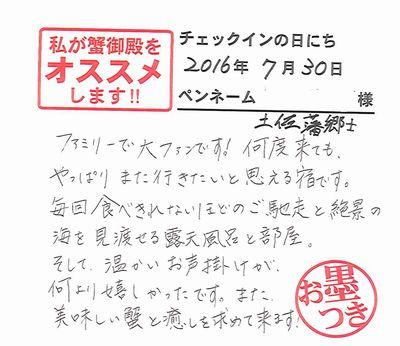 私が蟹御殿を
オススメ
します!!
チェックインの日にち
2016年 7月30日
ペンネーム 様
土佐藩郷士
ファミリーで大ファンです! 何度来ても、
やっぱり また行きたいと思える宿です。
毎回食べきれないほどのご馳走と絶景の
海を見渡せる露天風呂と部屋。
そして、温かいお声掛けが、
何より嬉しかったです。また、
美味しい蟹と癒しを求めて来ます!
お墨つき